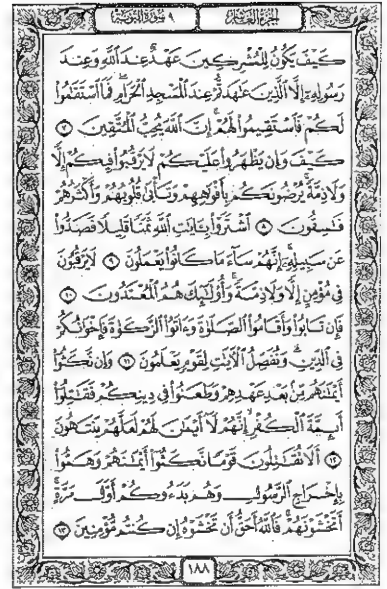 الجزء العاشر ٩ سورة التوبة
كَيْفَ يَكُونُ لِلْمُشْرِكِينَ عَهْدٌ عِندَ اللَّهِ وَعِندَ
رَسُولِهِ إِلَّا الَّذِينَ عَٰهَدتُّمْ عِندَ الْمَسْجِدِ الْحَرَامِ ۖ فَمَا اسْتَقَٰمُوا
لَكُمْ فَاسْتَقِيمُوا لَهُمْ ۚ إِنَّ اللَّهَ يُحِبُّ الْمُتَّقِينَ ٧
كَيْفَ وَإِن يَظْهَرُوا عَلَيْكُمْ لَا يَرْقُبُوا فِيكُمْ إِلًّا
وَلَا ذِمَّةً ۚ يُرْضُونَكُم بِأَفْوَٰهِهِمْ وَتَأْبَىٰ قُلُوبُهُمْ وَأَكْثَرُهُمْ
فَٰسِقُونَ ٨ اشْتَرَوْا بِـَٔايَٰتِ اللَّهِ ثَمَنًا قَلِيلًا فَصَدُّوا
عَن سَبِيلِهِ ۚ إِنَّهُمْ سَآءَ مَا كَانُوا يَعْمَلُونَ ٩ لَا يَرْقُبُونَ
فِي مُؤْمِنٍ إِلًّا وَلَا ذِمَّةً ۚ وَأُولَٰٓئِكَ هُمُ الْمُعْتَدُونَ ١٠
فَإِن تَابُوا وَأَقَامُوا الصَّلَوٰةَ وَءَاتَوُا الزَّكَوٰةَ فَإِخْوَٰنُكُمْ
فِي الدِّينِ ۗ وَنُفَصِّلُ الْآيَٰتِ لِقَوْمٍ يَعْلَمُونَ ١١ وَإِن نَّكَثُوا
أَيْمَٰنَهُم مِّن بَعْدِ عَهْدِهِمْ وَطَعَنُوا فِي دِينِكُمْ فَقَٰتِلُوا
أَئِمَّةَ الْكُفْرِ ۙ إِنَّهُمْ لَا أَيْمَٰنَ لَهُمْ لَعَلَّهُمْ يَنتَهُونَ
١٢ أَلَا تُقَٰتِلُونَ قَوْمًا نَّكَثُوا أَيْمَٰنَهُمْ وَهَمُّوا
بِإِخْرَاجِ الرَّسُولِ وَهُم بَدَءُوكُمْ أَوَّلَ مَرَّةٍ ۚ
أَتَخْشَوْنَهُمْ ۚ فَاللَّهُ أَحَقُّ أَن تَخْشَوْهُ إِن كُنتُم مُّؤْمِنِينَ ١٣
١٨٨